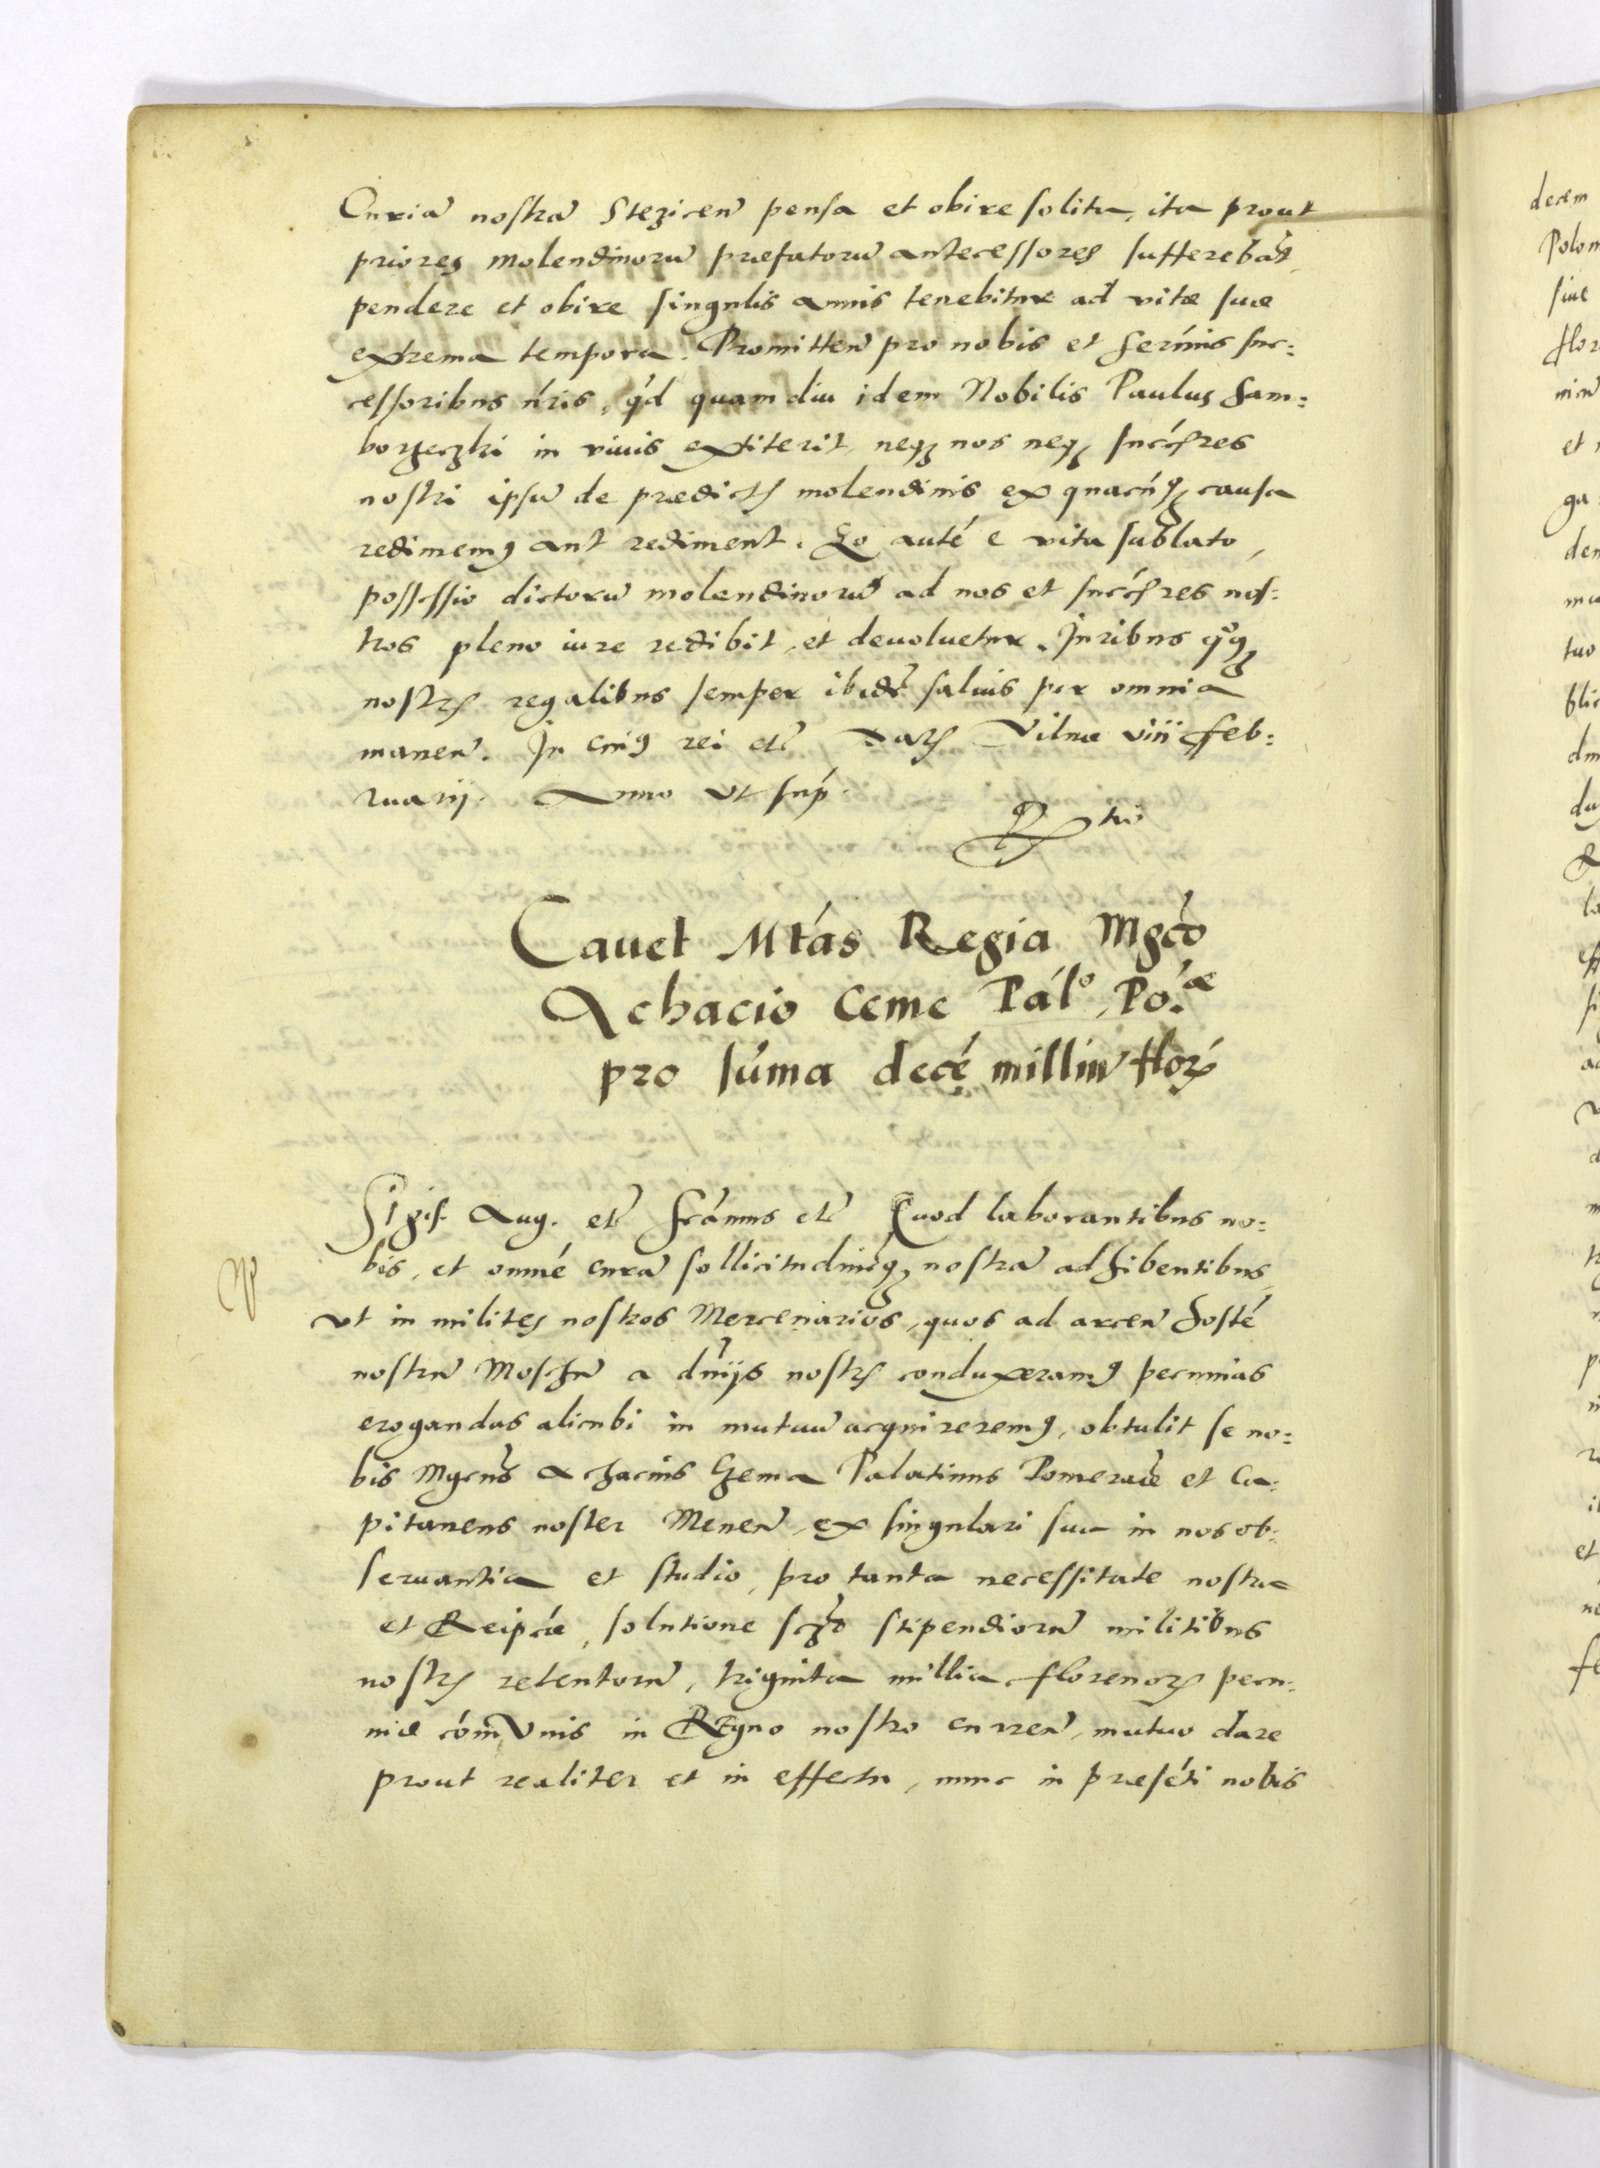 Curiā nostrā Stezicen̄ pensa et obire solita, ita prout
priores molendinorū præfatorū antecessores sufferebāt,
pendere et obire singulis annis tenebitur ad vitæ suæ
extrema tempora. Promitten̄ pro nobis et Serm̄is suc:
cessoribus nr̄is, qd̄ quam diu idem Nobilis Paulus Sam:
borzeczki in viuis extiterit, neqꝫ nos neqꝫ succ̄res
nostri ipsū de prædictꝭ molendinis ex quacūqꝫ causa
redimemꝰ aut rediment. Eo autē e vita sublato,
possessio dictorū molendinorū ad nos et succ̄res nos:
tros pleno iure redibit, et deuoluetur. Iuribus qꝫ
nostrꝭ regalibus semper ibidē saluis per omnia
manen̄. In cuiꝰ rei etc̄ Datꝭ Vilnæ viii Feb:
ruarij. Anno vt sup̄.
Cauet Mt́as Regia Mgcó
Achacio Ceme Pál°, Pó.æ
pro sūma decē milliū florꝝ
Sigis. Aug. etc̄ Scām̄us etc̄ Quod laborantibus no:
bis, et omnē curā sollicitudinēqꝫ nostrā adhibentibus,
vt in milites nostros Mercenarios, quos ad arcen̄ hostē
nostrū Moschū a dn̄ijs nostrꝭ conduxeramꝰ pecunias
erogandas alicubi in mutuū acquireremꝰ, obtulit se no:
bis Mgcus̄ Achacius Czema Palatinus Pomeraǣ et Ca:
pitaneus noster Meuen̄, ex singulari sua in nos ob:
seruantia et studio, pro tanta necessitate nostra
et Reipćæ, solutione sczꝫ stipendiorū militibus
nostrꝭ retentorū, triginta millia florenorꝝ pecu:
niæ cóm̄vnis in Regno nostro curren̄, mutuo dare
prout realiter et in effectu, nunc in præsēti nobis
decem
Polon
siue
flor
et
ga
den
tuo